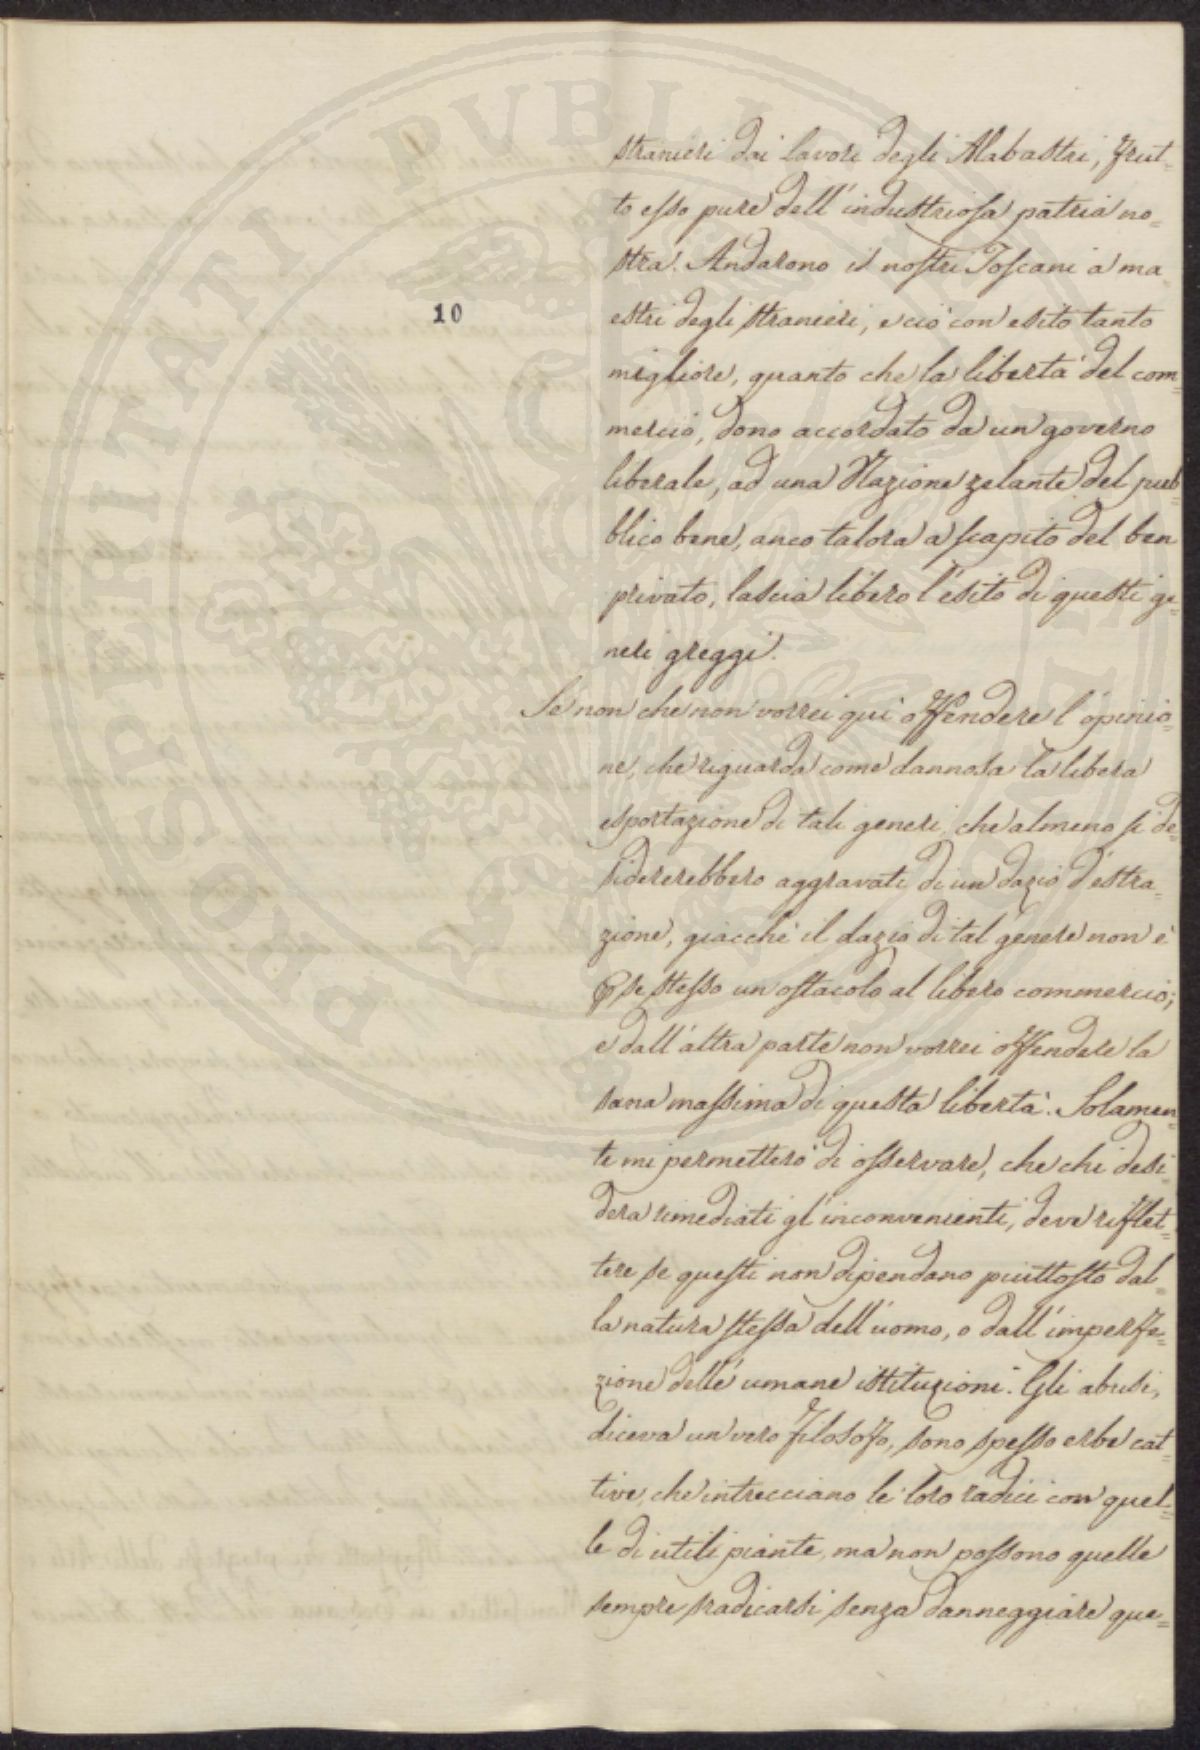 PROSPERITATI PUBLICAE
10
stranieri dai lavori degli Alabastri, frut=
to esso pure dell'industriosa patria no=
stra. Andarono i nostri Toscani a ma
estri degli stranieri, e ciò con esito tanto
migliore, quanto che la libertà del com=
mercio, dono accordato da un governo
liberale, ad una Nazione zelante del pub=
blico bene, anco talora a scapito del ben
privato, lascia libero l'esito di questi ge=
neri greggi.
Se non che non vorrei qui offendere l'opinio=
ne, che riguarda come dannosa la libera
esportazione di tali generi, che almeno si de=
sidererebbero aggravati di un dazio d'estra=
zione, giacchè il dazio di tal genere non è
per se stesso un ostacolo al libero commercio;
e dall'altra parte non vorrei offendere la
sana massima di questa libertà. Solamen=
te mi permetterò di osservare, che chi desi=
dera rimediati gl'inconvenienti, deve riflet=
tere se questi non dipendano piuttosto dal=
la natura stessa dell'uomo, o dall'imperfe=
zione delle umane istituzioni. Gli abusi,
diceva un vero filosofo, sono spesso erbe cat=
tive, che intrecciano le loro radici con quel=
le di utili piante, ma non possono quelle
sempre sradicarsi senza danneggiare que=